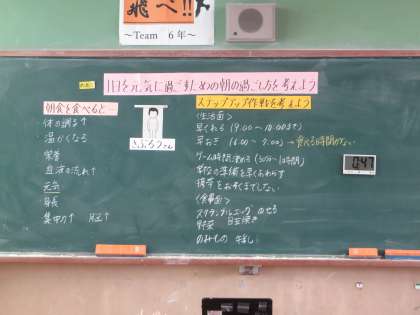 飛べ!!
〜Team 6年〜
めあて
1日を元気に過ごすための朝の過ごし方を考えよう
朝食を食べると…
体の調子↑
温かくなる
栄養
血液の流れ↑
元気
身長
集中力↑ 学力↑
ステップアップ作戦を考えよう
〈生活面〉
早くねる (9:00〜10:00まで)
早おき (6:00〜7:00) →食べる時間がない
ゲーム時間決める (30分〜1時間)
学校の準備を早くおわらす
携帯をおそくまでしない
〈食事面〉
スクランブルエッグ のせる
野菜 目玉焼き
のみもの 牛乳
0:47